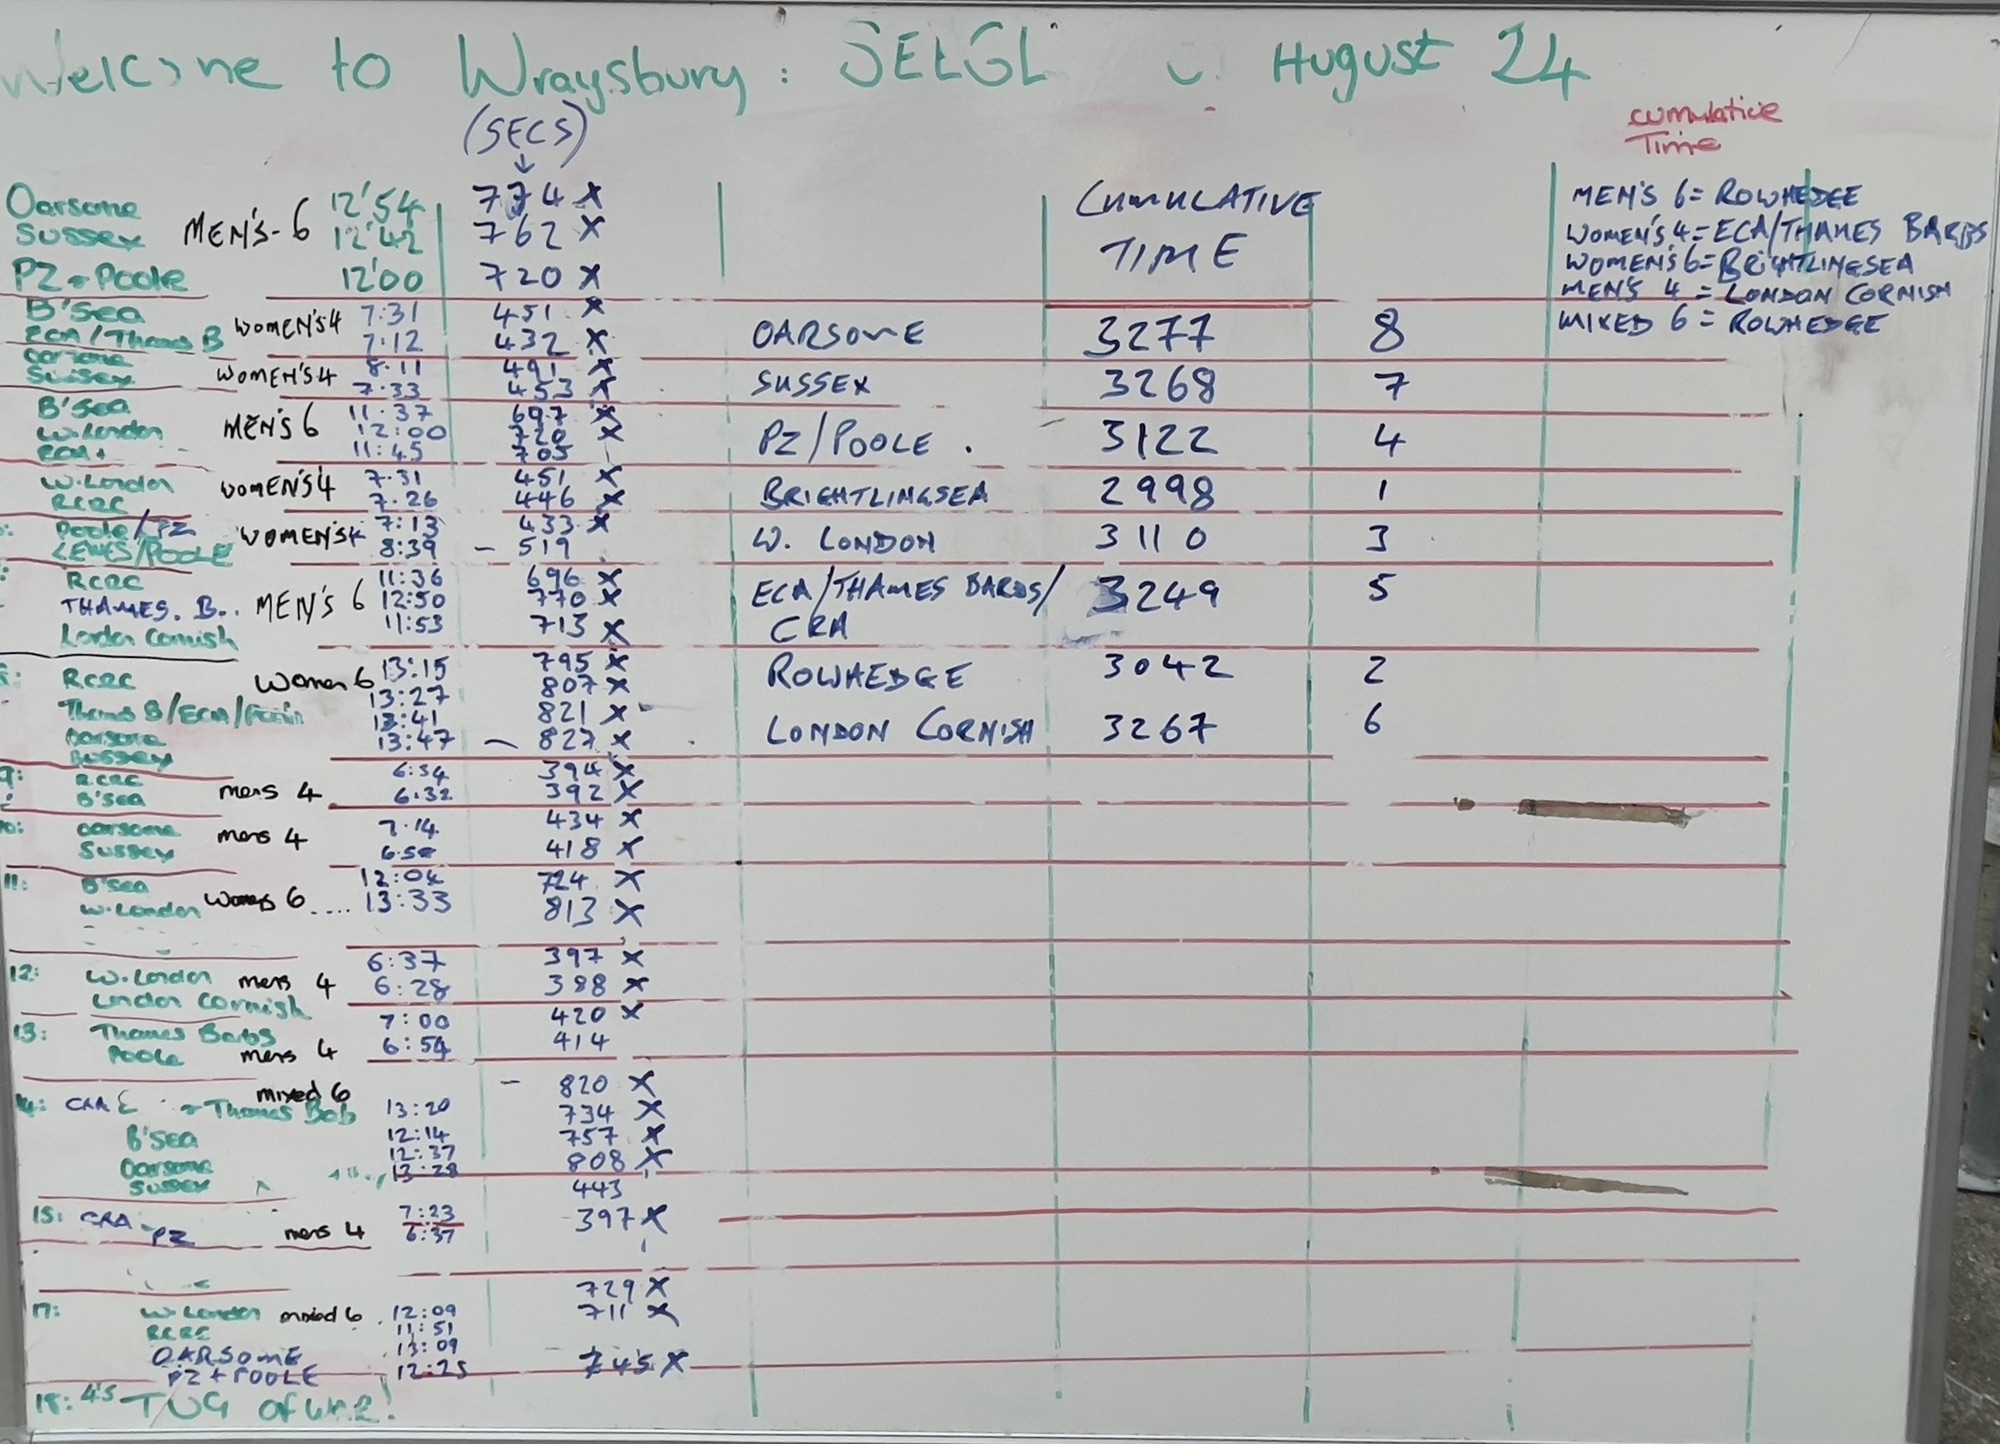 Welcome to Wraysbury: SELGL August 24
(SECS)
cumulative
Time
Oarsome MEN'S-6 12'54 774 x
Sussex 12'42 762 x
PZ+Poole 12'00 720 x
CUMULATIVE
TIME
MEN'S 6 = ROWHEDGE
WOMEN'S 4 = ECA/THAMES BARBS
WOMEN'S 6 = BRIGHTLINGSEA
MEN'S 4 = LONDON CORNISH
MIXED 6 = ROWHEDGE
B'Sea WOMEN'S 4 7:31 451 x
ECA/Thames B 7:12 432 x
OARSOME 3277 8
Oarsome WOMEN'S 4 8:11 491 x
Sussex 7:33 453 x
SUSSEX 3268 7
B'Sea MEN'S 6 11:37 697 x
W.London 12:00 720 x
ECA+ 11:45 705
PZ/POOLE. 3122 4
W.London WOMEN'S 4 7.31 451 x
RCRC 7.26 446 x
BRIGHTLINGSEA 2998 1
Poole/PZ WOMEN'S 4 7:13 433 x
LEWES/POOLE 8:39 - 519
W. LONDON 3110 3
RCRC MEN'S 6 11:36 696 x
THAMES. B.. 12:50 770 x
London Cornish 11:53 713 x
ECA/THAMES BARBS/ 3249 5
CRA
RCRC Women 6 13:15 795 x
Thames B/ECA 13:27 807 x
Oarsome 13:41 821 x
Sussex 13:47 - 827 x
ROWHEDGE 3042 2
LONDON CORNISH 3267 6
9: RCRC mens 4 6:34 394 x
B'sea 6:32 392 x
10: Oarsome mens 4 7:14 434 x
Sussex 6:58 418 x
11: B'sea Womens 6 .... 12:04 724 x
W.London 13:33 813 x
12: W.London mens 4 6:37 397 x
London Cornish 6:28 388 x
13: Thames Barbs mens 4 7:00 420 x
Poole 6:54 414
mixed 6 - 820 x
14: CRA + Thames Bob 13:20 734 x
B'Sea 12:14 757 x
Oarsome 12:37 808 x
Sussex 13:28 443
15: CRA mens 4 7:23 397 x
PZ 6:37
729 x
17: W.London mixed 6 12:09 711 x
RCRC 11:51
OARSOME 13:09
PZ + POOLE 12:25 745 x
18: 4's TUG of War!